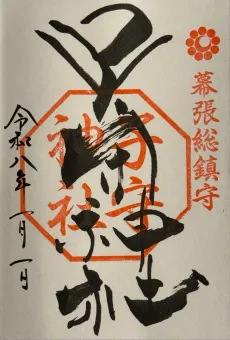 幕張総鎮守
子守神社
子守神社
令和八年 一月一日